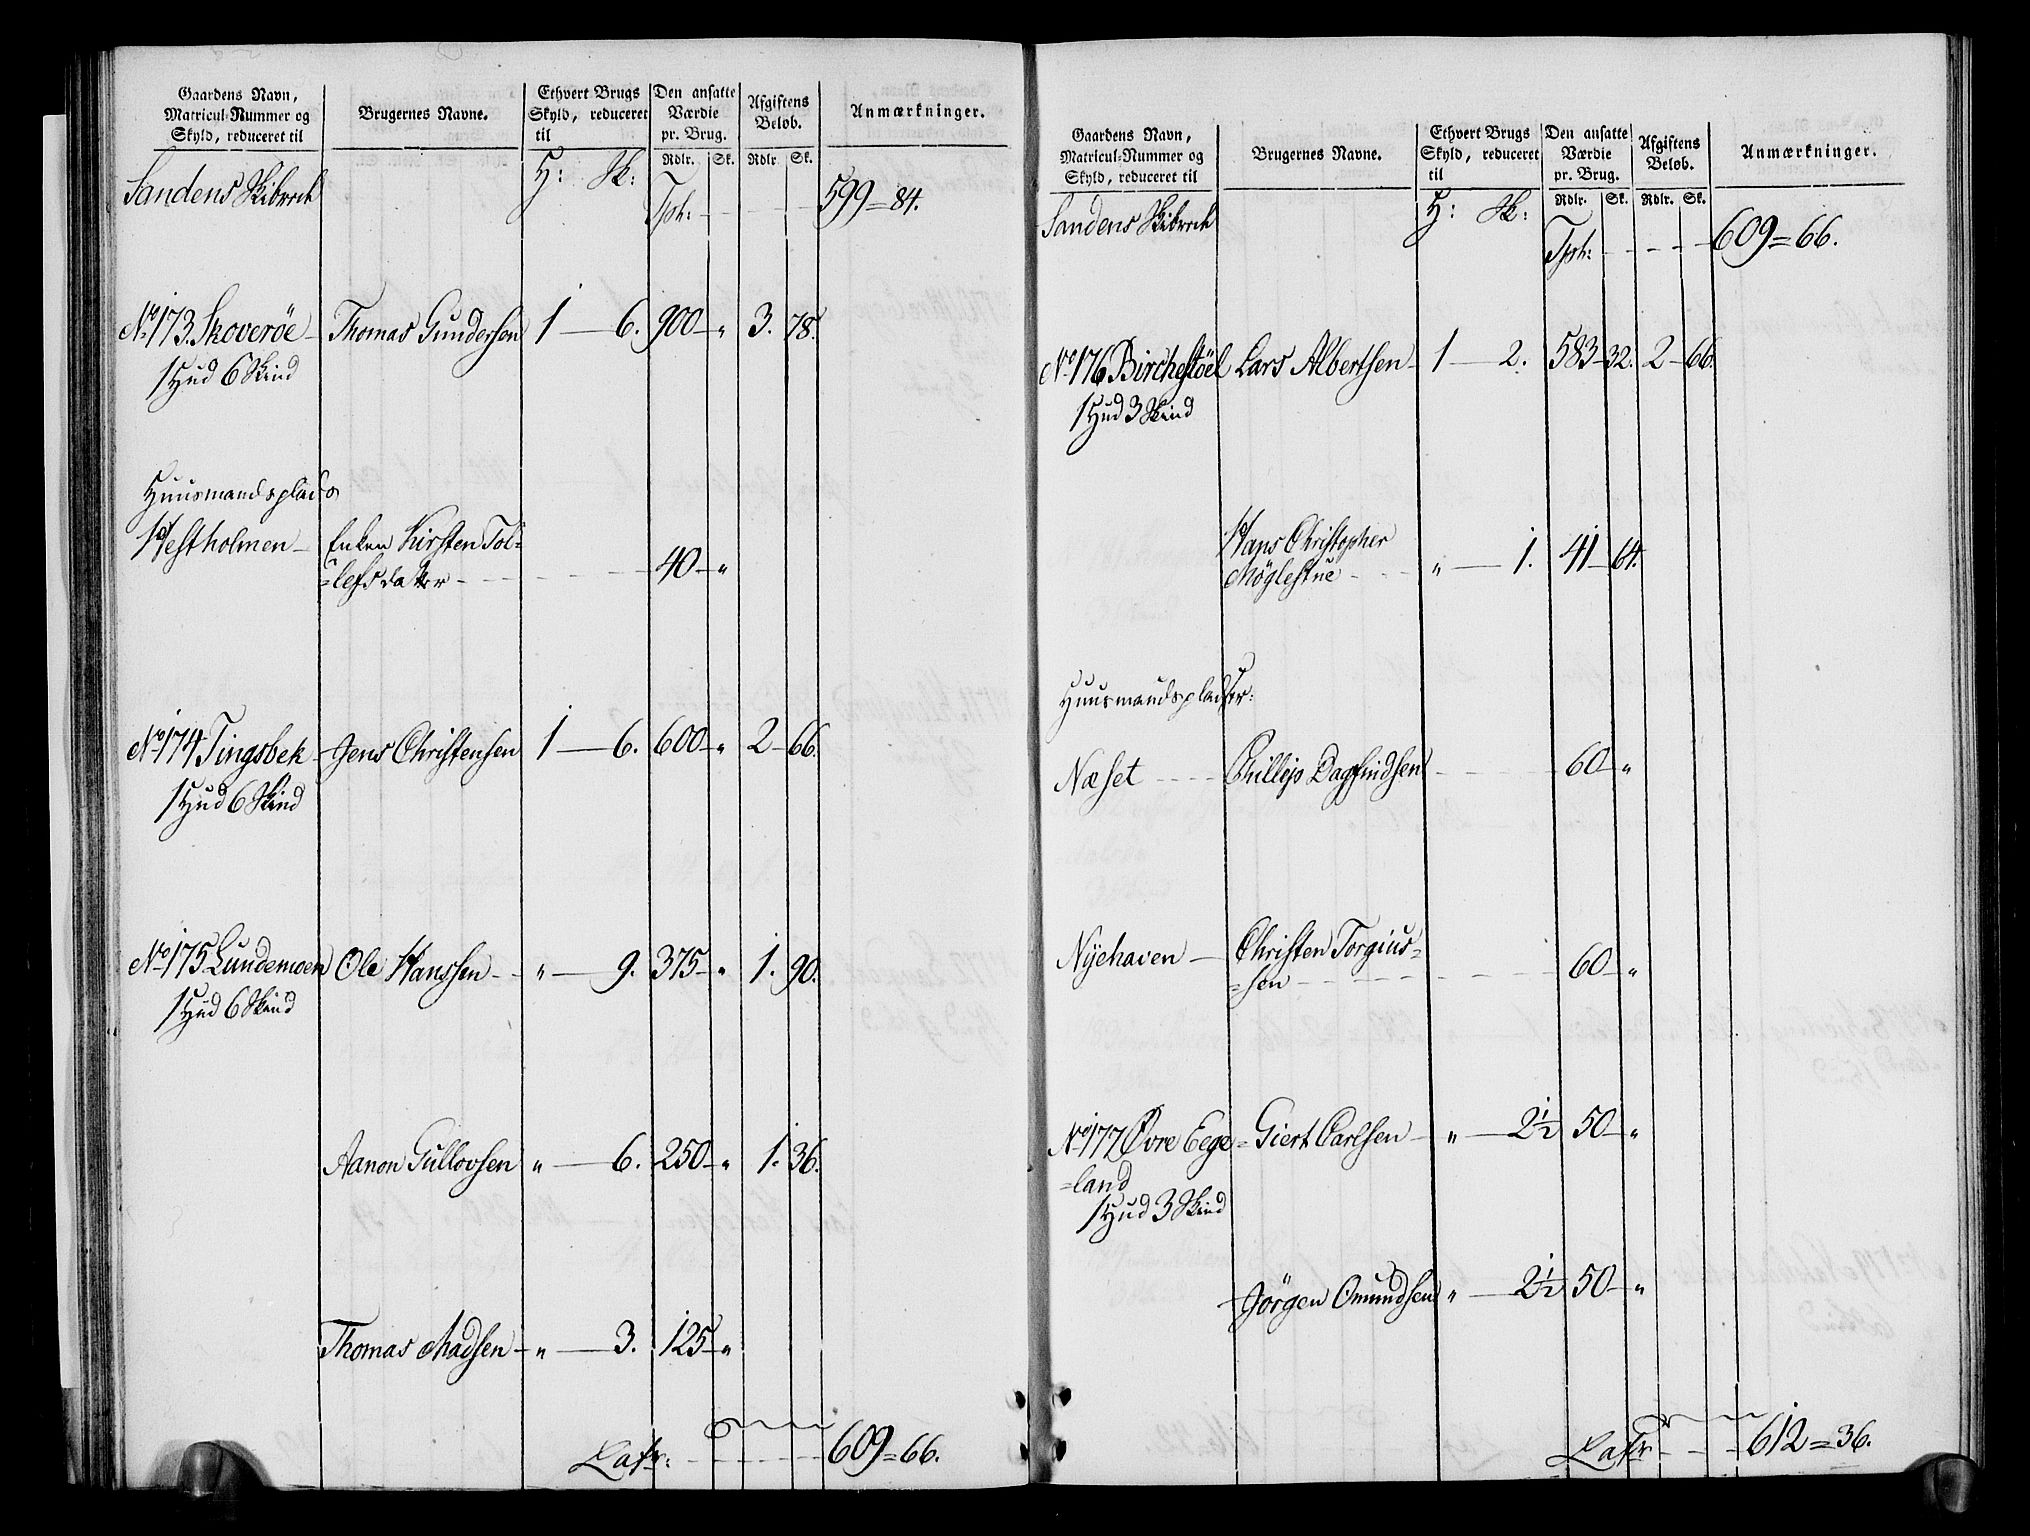 Gaardens Navn, Matricul-Nummer og Skyld, reduceret til | Brugernes Navne. | Ethvert Brugs Skyld, reduceret til | Den ansatte Værdie pr. Brug. | Afgiftens Beløb. | Anmærkninger.
H: Sk: | Rdlr. | Sk. | Rdlr. | Sk.
Sandens Skibrede Tpt: - - - 599 = 84.
No 173. Skoverøe - Thomas Gundersen 1 — 6. 900 — „ 3. 78.
1 Hud 6 Skind
Huusmandsplads
Westholmen - Enken Kirsten Tol=
=lefsdatter - - - - 40 — „
No 174 Tingsbek - Jens Christensen 1 — 6. 600 — „ 2 — 66.
1 Hud 6 Skind
No 175 Lundemoen Ole Hanssen - - „ — 9. 375 — „ 1. 90.
1 Hud 6 Skind
Aanon Gullovsen „ — 6. 250 — „ 1. 36.
Thomas Madsen - „ — 3. 125 — „
Latr: - - - 609 = 66.
Gaardens Navn, Matricul-Nummer og Skyld, reduceret til | Brugernes Navne. | Ethvert Brugs Skyld, reduceret til | Den ansatte Værdie pr. Brug. | Afgiftens Beløb. | Anmærkninger.
H: Sk: | Rdlr. | Sk. | Rdlr. | Sk.
Sandens Skibrede Tpt: - - - 609 = 66.
No 176 Birchestöel Lars Albertsen - 1 — 2. 583 — 32. 2 — 66.
1 Hud 3 Skind
Hans Christopher
Møglestue - - - „ — 1. 41 — 64.
Huusmandspladser:
Næset - - - Phillip Dagfindsen - - - 60 — „
Nyehaven — Christen Torgius=
=sen - - - - 60 — „
No 177 Øvre Eege= Giert Carlsen - „ — 2½ 50 — „
=land
1 Hud 3 Skind
Jörgen Omundsen „ — 2½ 50 — „
Latr - - - 612 = 36.